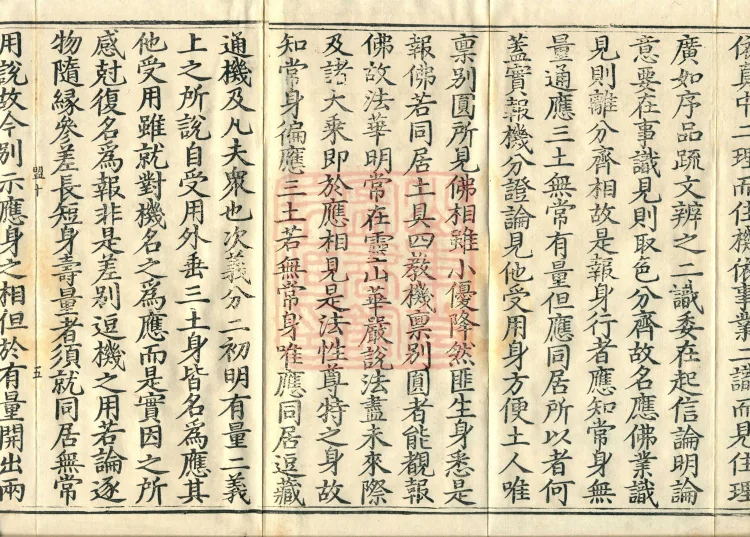 廣如序品疏文辨之二識委在起信論明論
意要在事識見則取色分齊故名應佛業識
見則離分齊相故是報身行者應知常身無
量通應三土無常有量但應同居所以者何
蓋實報機分證論見他受用身方便土人唯
稟別圓所見佛相雖小優降然匪生身悉是
報佛若同居土具四教機稟別圓者能觀報
佛故法華明常在靈山華嚴說法盡未來際
及諸大乘即於應相見是法性尊特之身故
知常身徧應三土若無常身唯應同居逗藏
通機及凡夫衆也次義分二初明有量二義
上之所說自受用外垂三土身皆名爲應其
他受用雖就對機名之爲應而是實因之所
感尅復名爲報非是差別逗機之用若論逐
物隨緣參差長短身壽量者須就同居無常
盟十
五
用說故今別示應身之相但於有量開出兩